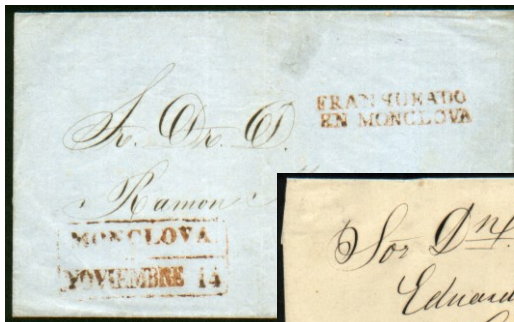 FRANQUEADO
EN MONCLOVA
Sr. Dn. D.
Ramon
MONCLOVA
NOVIEMBRE 14
Sor Dn.
Eduard